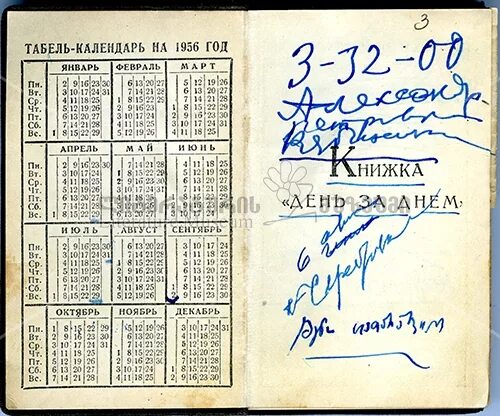 ТАБЕЛЬ-КАЛЕНДАРЬ НА 1956 ГОД
ЯНВАРЬ ФЕВРАЛЬ МАРТ
Пн. 2 9 16 23 30 6 13 20 27 5 12 19 26
Вт. 3 10 17 24 31 7 14 21 28 6 13 20 27
Ср. 4 11 18 25 1 8 15 22 29 7 14 21 28
Чт. 5 12 19 26 2 9 16 23 1 8 15 22 29
Пт. 6 13 20 27 3 10 17 24 2 9 16 23 30
Сб. 7 14 21 28 4 11 18 25 3 10 17 24 31
Вс. 1 8 15 22 29 5 12 19 26 4 11 18 25
АПРЕЛЬ МАЙ ИЮНЬ
Пн. 2 9 16 23 30 7 14 21 28 4 11 18 25
Вт. 3 10 17 24 1 8 15 22 29 5 12 19 26
Ср. 4 11 18 25 2 9 16 23 30 6 13 20 27
Чт. 5 12 19 26 3 10 17 24 31 7 14 21 28
Пт. 6 13 20 27 4 11 18 25 1 8 15 22 29
Сб. 7 14 21 28 5 12 19 26 2 9 16 23 30
Вс. 1 8 15 22 29 6 13 20 27 3 10 17 24
ИЮЛЬ АВГУСТ СЕНТЯБРЬ
Пн. 2 9 16 23 30 6 13 20 27 3 10 17 24
Вт. 3 10 17 24 31 7 14 21 28 4 11 18 25
Ср. 4 11 18 25 1 8 15 22 29 5 12 19 26
Чт. 5 12 19 26 2 9 16 23 30 6 13 20 27
Пт. 6 13 20 27 3 10 17 24 31 7 14 21 28
Сб. 7 14 21 28 4 11 18 25 1 8 15 22 29
Вс. 1 8 15 22 29 5 12 19 26 2 9 16 23 30
ОКТЯБРЬ НОЯБРЬ ДЕКАБРЬ
Пн. 1 8 15 22 29 5 12 19 26 3 10 17 24 31
Вт. 2 9 16 23 30 6 13 20 27 4 11 18 25
Ср. 3 10 17 24 31 7 14 21 28 5 12 19 26
Чт. 4 11 18 25 1 8 15 22 29 6 13 20 27
Пт. 5 12 19 26 2 9 16 23 30 7 14 21 28
Сб. 6 13 20 27 3 10 17 24 1 8 15 22 29
Вс. 7 14 21 28 4 11 18 25 2 9 16 23 30
3
3-32-00
Александр
КНИЖКА
«ДЕНЬ ЗА ДНЕМ»
6